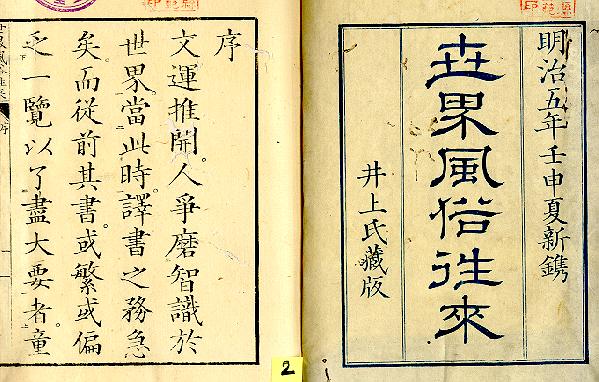 明治五年壬申夏新鐫
世界風俗往來
井上氏藏版
序
文運推開。人爭磨智識於
世界。當此時。譯書之務急
矣。而從前其書。或繁或偏
乏一覽以了盡大要者。童
2